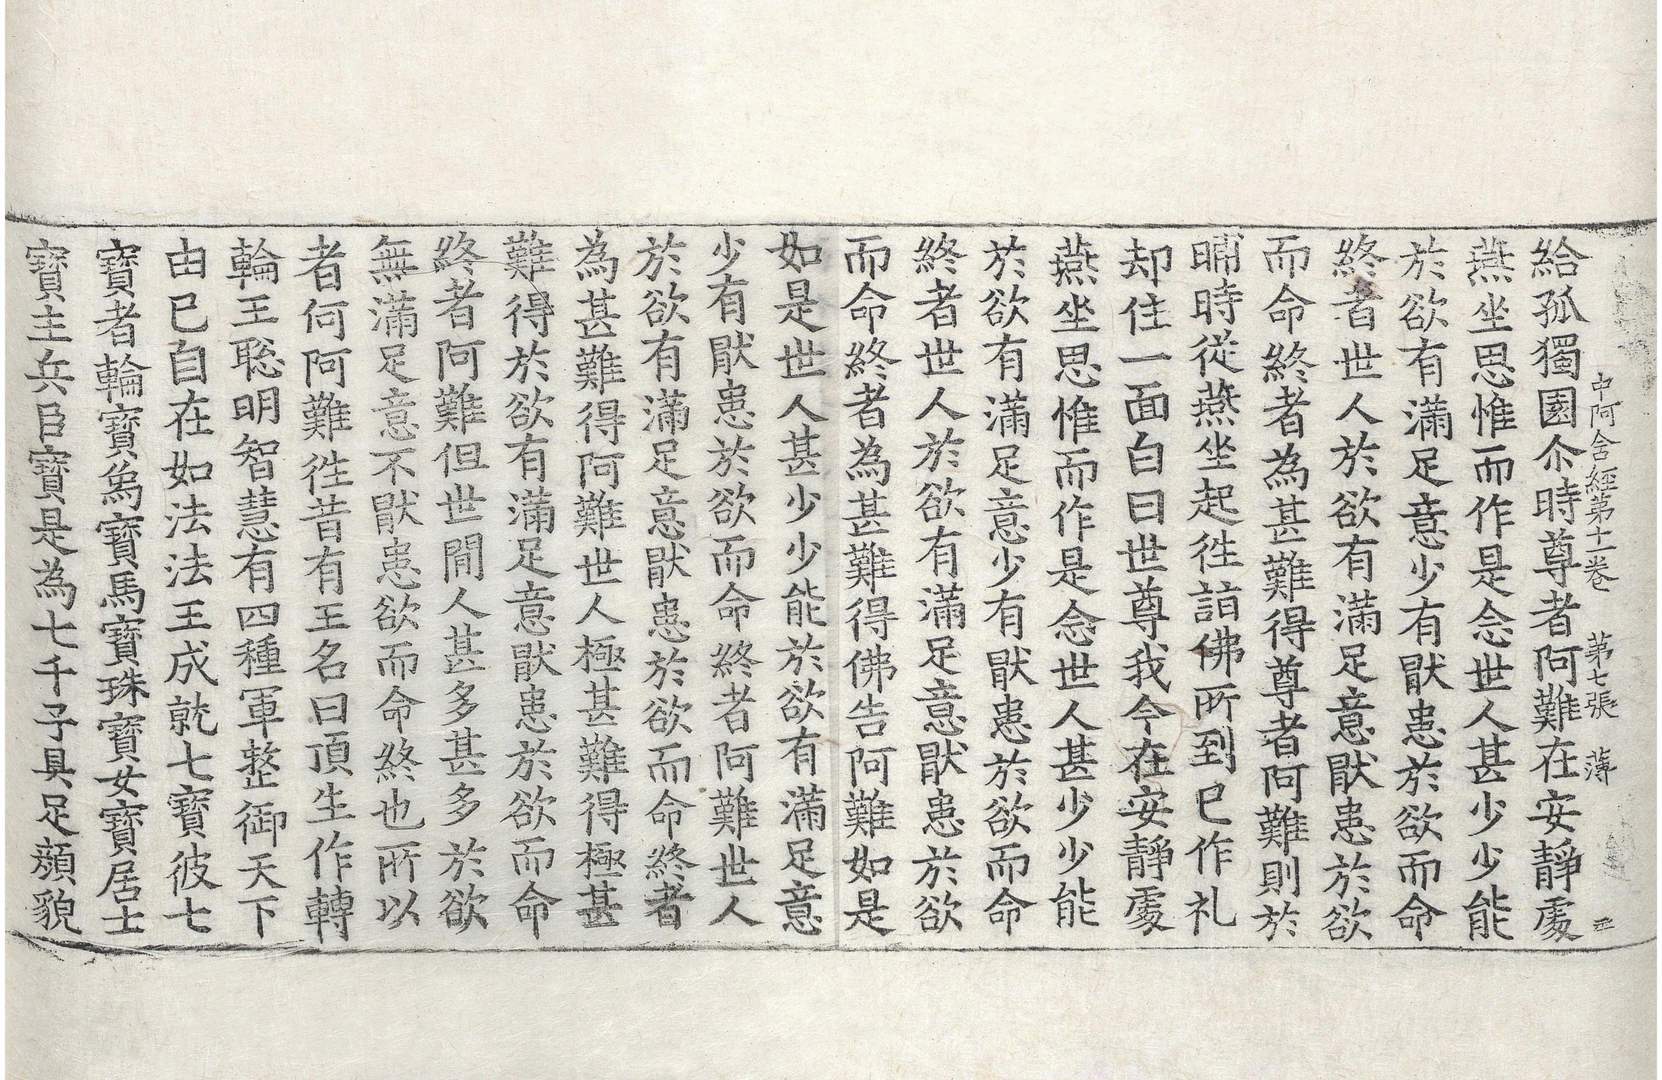 中阿含經第十一卷　第七張　薄
給孤獨園尒時尊者阿難在安靜處
燕坐思惟而作是念世人甚少少能
於欲有滿足意少有猒患於欲而命
終者世人於欲有滿足意猒患於欲
而命終者為甚難得尊者阿難則於
晡時從燕坐起徃詣佛所到已作礼
却住一面白曰世尊我今在安靜處
燕坐思惟而作是念世人甚少少能
於欲有滿足意少有猒患於欲而命
終者世人於欲有滿足意猒患於欲
而命終者為甚難得佛告阿難如是
如是世人甚少少能於欲有滿足意
少有猒患於欲而命終者阿難世人
於欲有滿足意猒患於欲而命終者
為甚難得阿難世人極甚難得極甚
難得於欲有滿足意猒患於欲而命
終者阿難但世間人甚多甚多於欲
無滿足意不猒患欲而命終也所以
者何阿難徃昔有王名曰頂生作轉
輪王聦明智慧有四種軍整御天下
由已自在如法法王成就七寶彼七
寶者輪寶烏寶馬寶珠寶女寶居士
寶主兵臣寶是為七千子具足顏貌